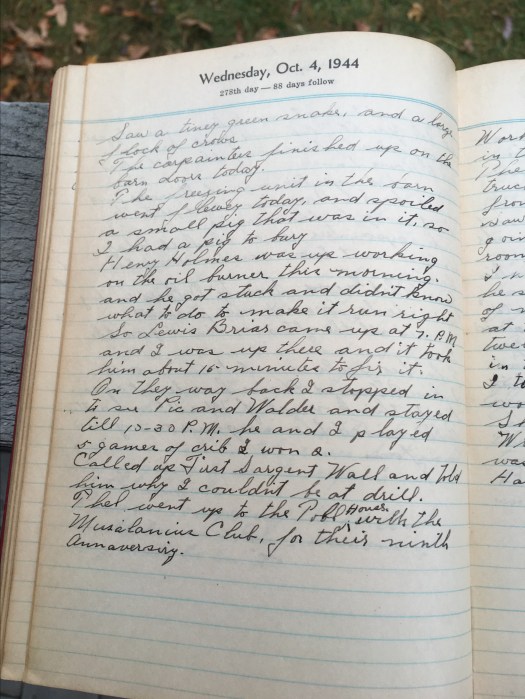 Wednesday, Oct. 4, 1944
278th day — 88 days follow
Saw a tiney green snake, and a large
flock of crows.
The carpainters finished up on the
barn doors today.
The freezing unit in the barn
went flewey today, and spoiled
a small pig that was in it, so
I had a pig to bury
Henry Holmes was up working
on the oil burner this morning.
and he got stuck and didn't know
what to do to make it run right
So Lewis Briar came up at 7. P.M.
and I was up there and it took
him about 15 minutes to fix it.
On they way back I stopped in
to see Pic and Walder and stayed
till 10-30 P.M. he and I played
5 games of crib I won 2.
Called up Furst Sargent Wall and told
him why I couldnt be at drill.
Phel went up to the Pool House with the
Musalanius Club, for their ninth
Annaversiry.
Wor
in t
The
truc
from
saw
goin
room
I
he s
of
at
twe
in
I to
wo
S
W
was
Ha